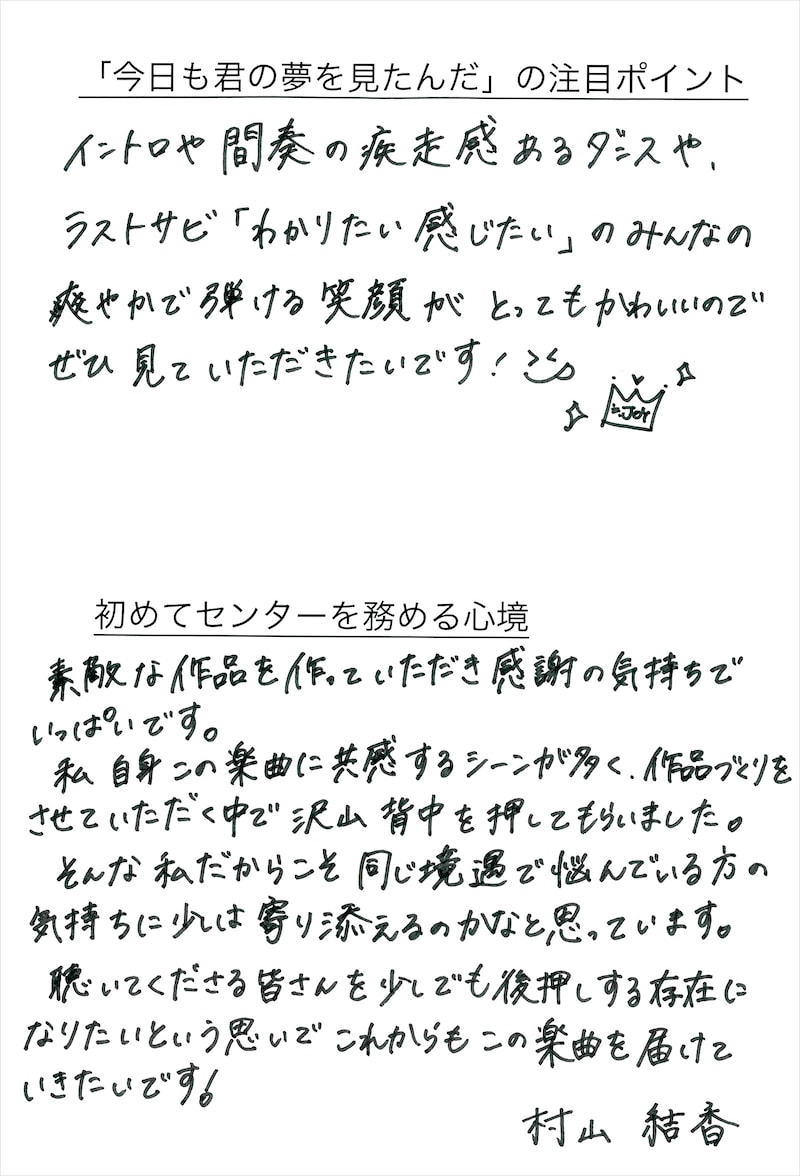 「今日も君の夢を見たんだ」の注目ポイント
イントロや間奏の疾走感あるダンスや、
ラストサビ「わかりたい感じたい」のみんなの
爽やかで弾ける笑顔がとってもかわいいので
ぜひ見ていただきたいです!
≒JOY
初めてセンターを務める心境
素敵な作品を作っていただき感謝の気持ちで
いっぱいです。
私自身この楽曲に共感するシーンが多く、作品づくりを
させていただく中で沢山背中を押してもらいました。
そんな私だからこそ同じ境遇で悩んでいる方の
気持ちに少しは寄り添えるのかなと思っています。
聴いてくださる皆さんを少しでも後押しする存在に
なりたいという思いでこれからもこの楽曲を届けて
いきたいです!
村山結香